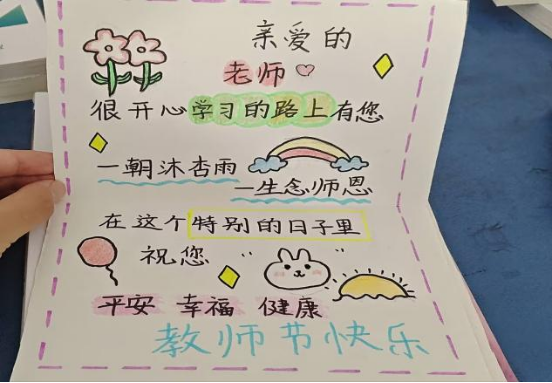 亲爱的
老师
很开心学习的路上有您
一朝沐杏雨
一生念师恩
在这个特别的日子里
祝您
平安 幸福 健康
教师节快乐